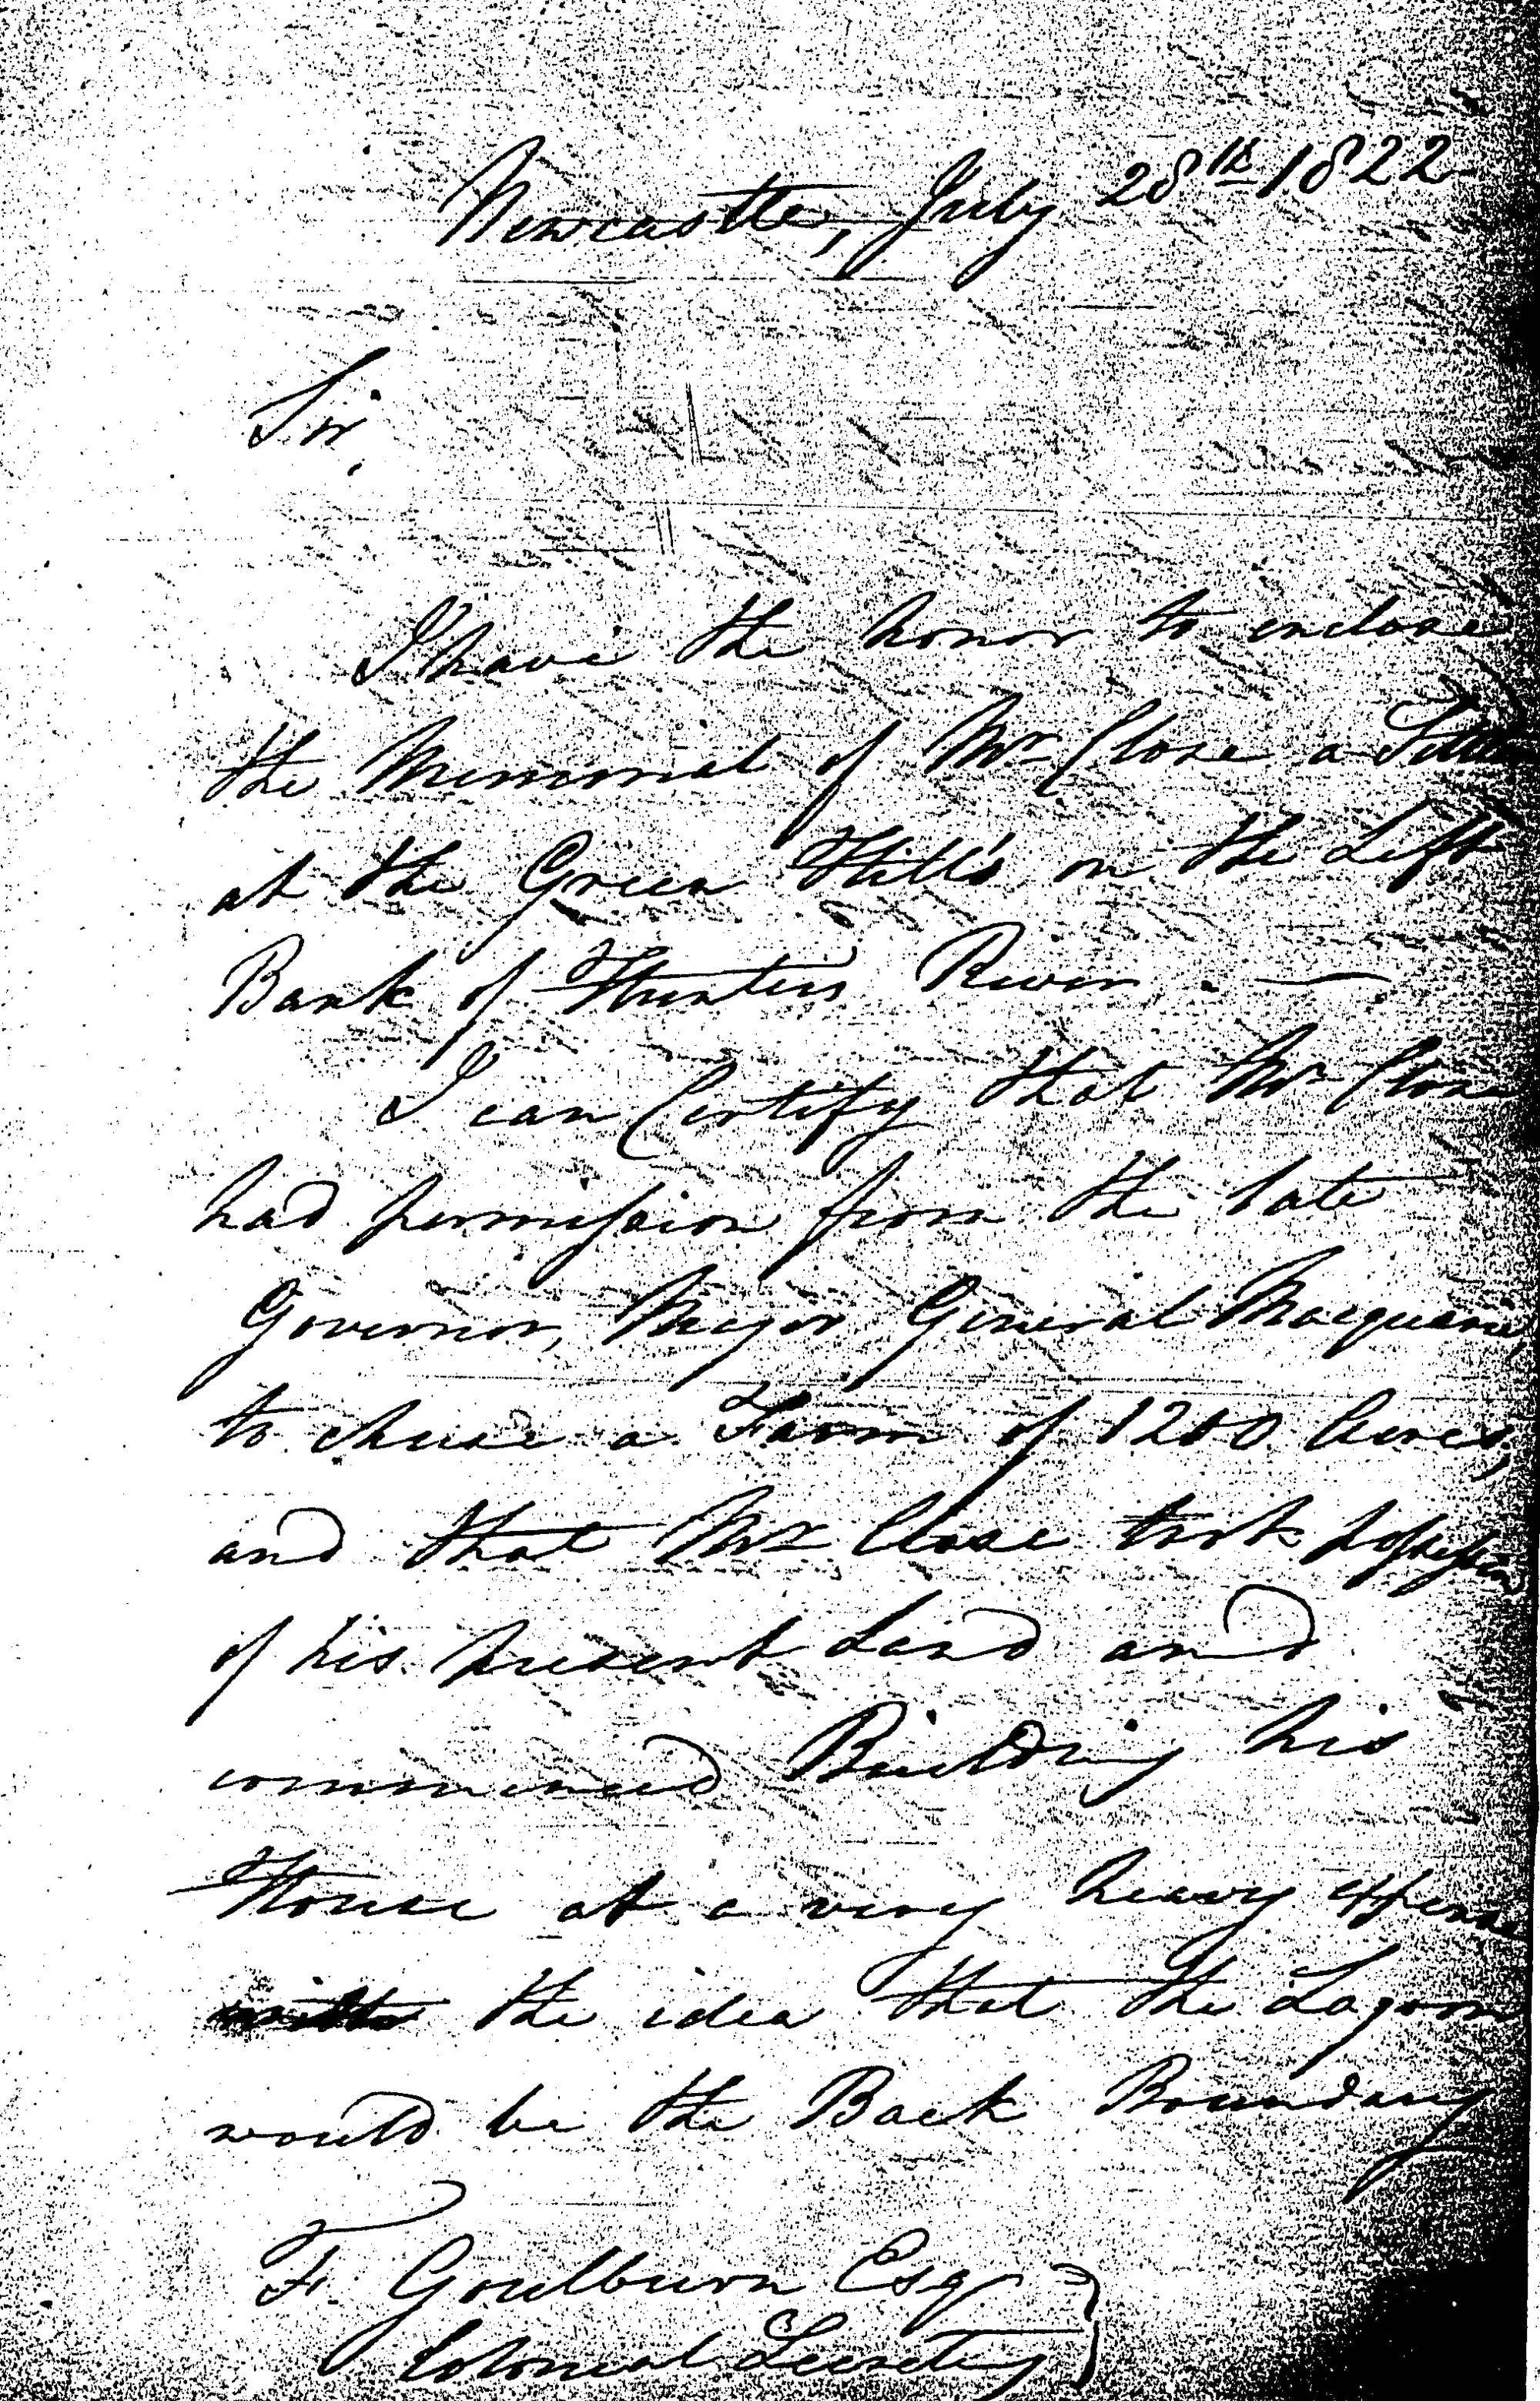 Newcastle, July 28th 1822
Sir,
I have the honor to enclose
the Memorial of Mr Close a Settler
at the Green Hills on the Left
Bank of Hunters River. —
I can Certify that Mr Close
had permission from the late
Governor, Major General Macquarie,
to chuse a Farm of 1200 Acres,
and that Mr Close took possession
of his present Land and
commenced Building his
House at a very heavy expense
with the idea that the Lagoon
would be the Back Boundary
F. Goulburn Esqr
Colonial Secretary